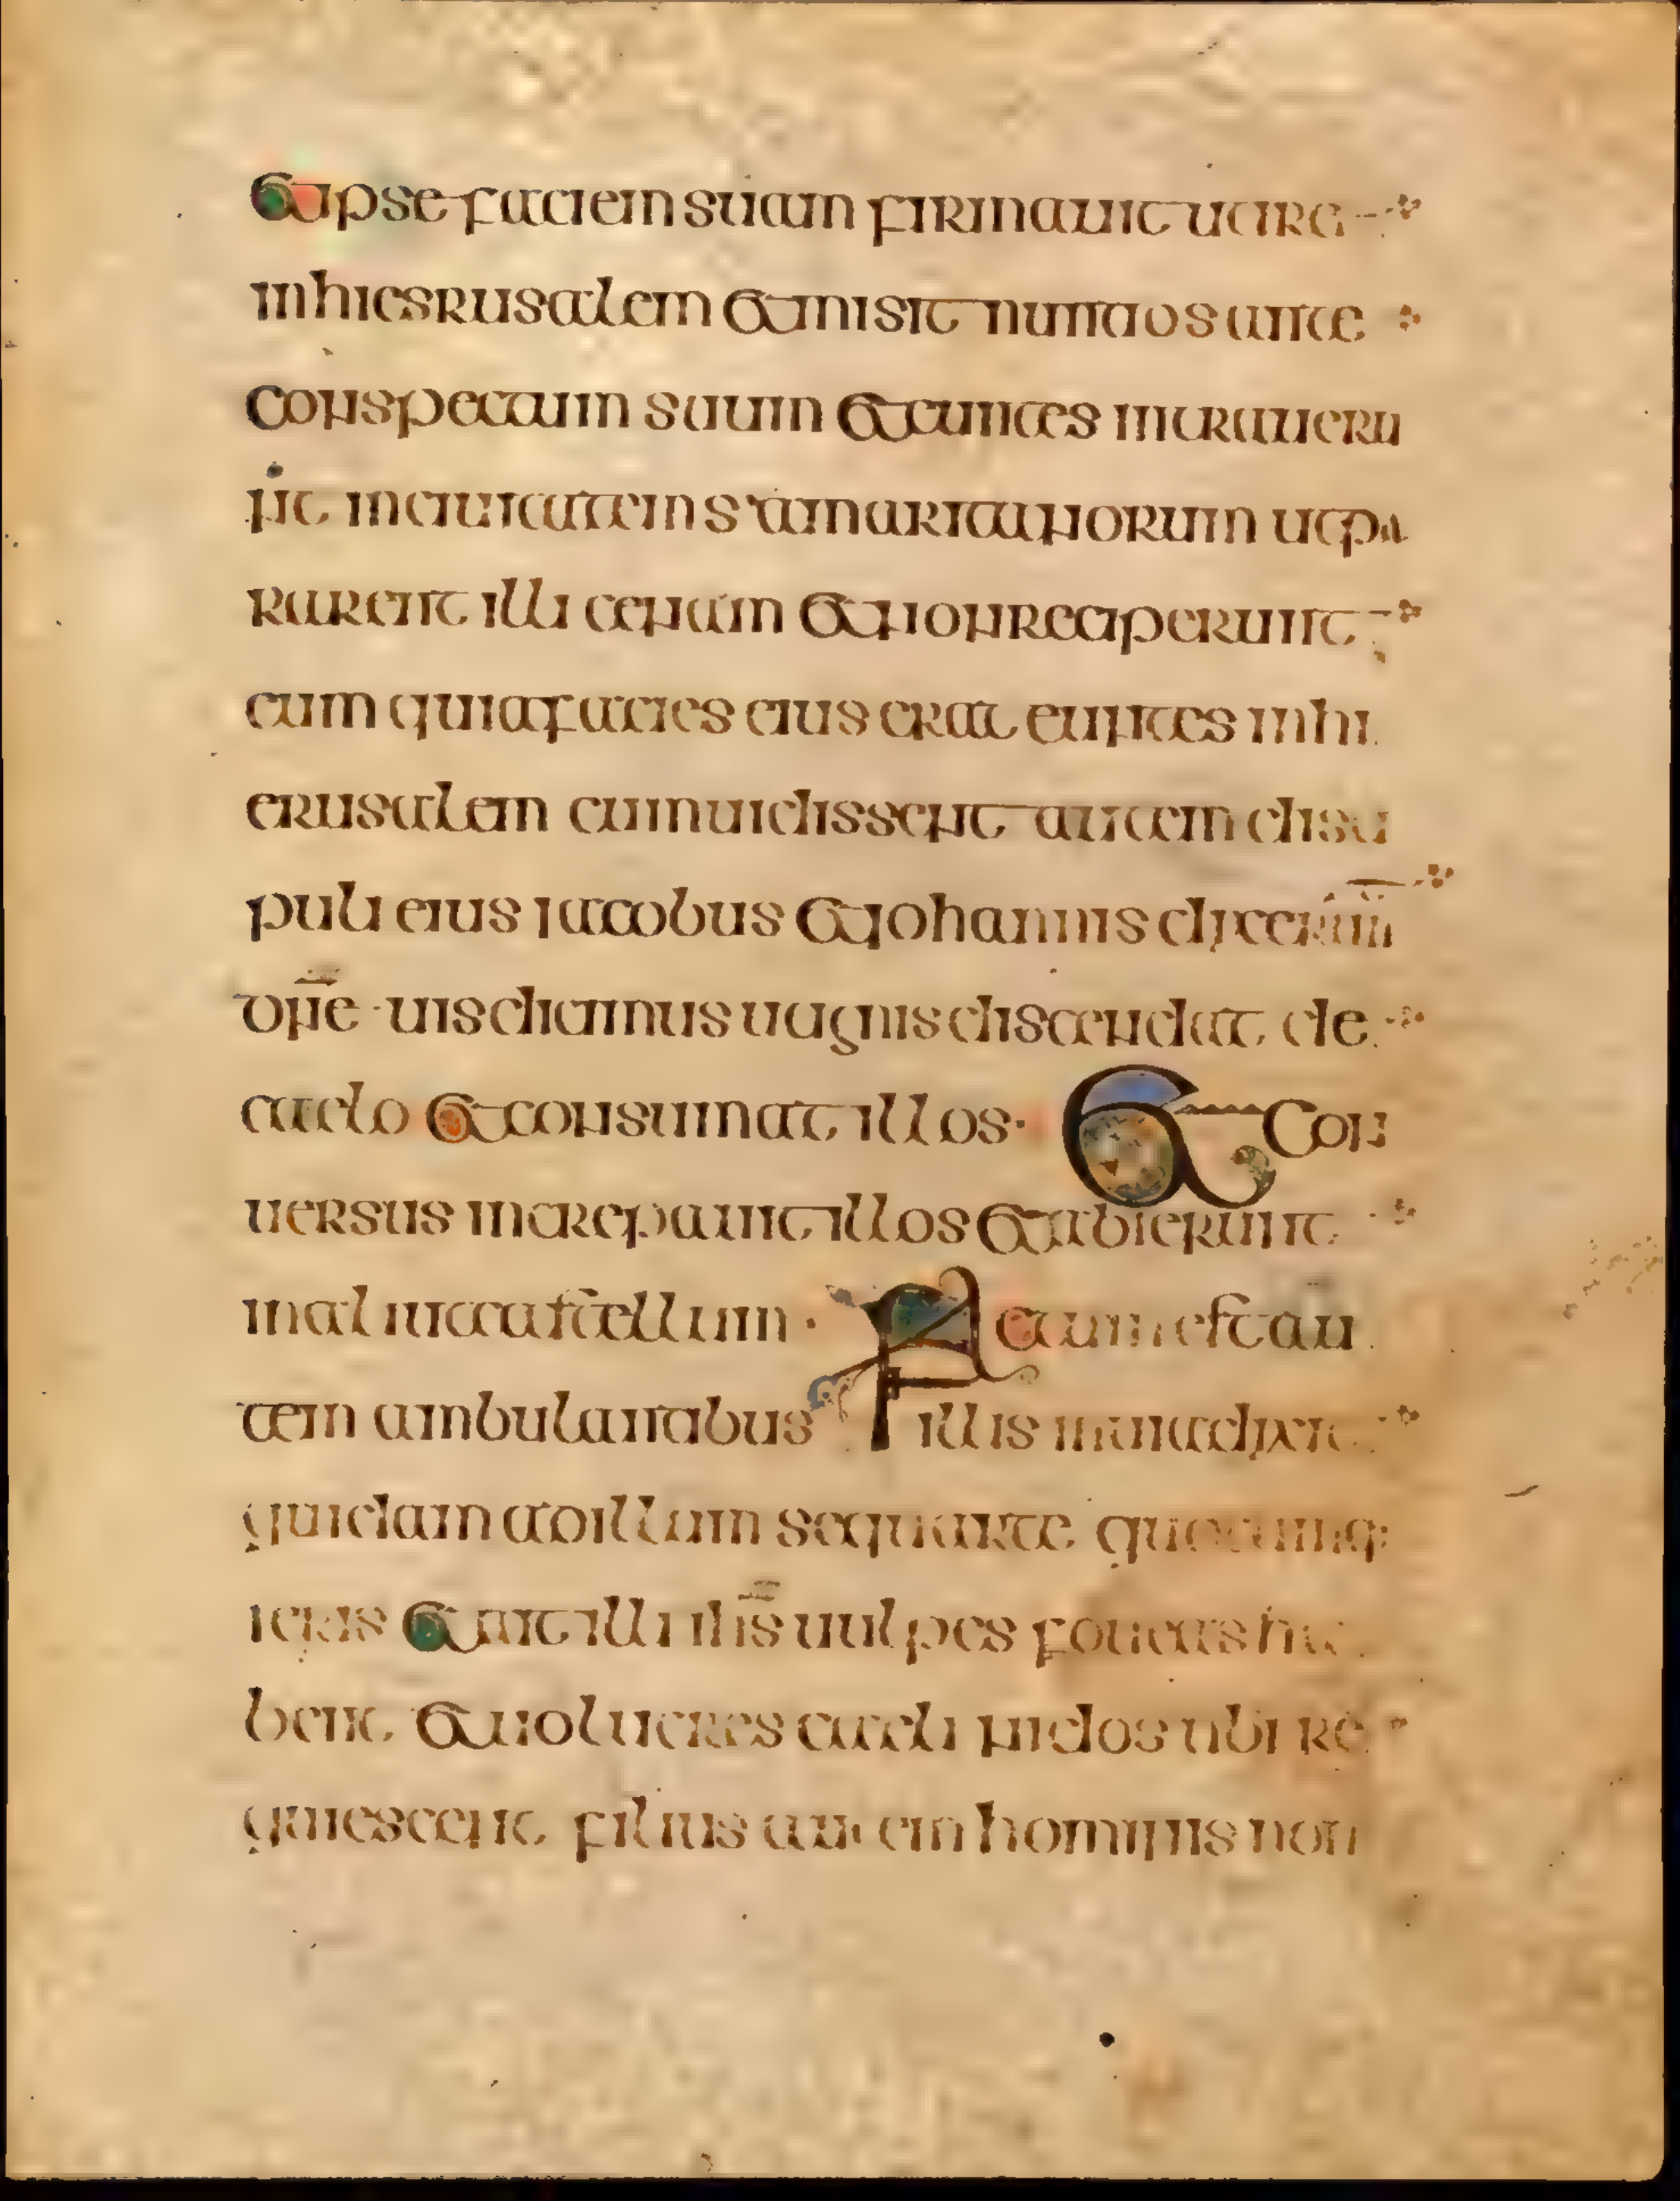 &ipse faciem suam firmauit uaire
inhiesrusalem & misit nuntios ante
conspectum suum & euntes intraueru
nt inciuitatem samaritanorum utpa
rarent illi cenam & nonreciperunt
eum quia facies eius erat euntes inhi
erusalem cumuidissent autem disci
puli eius iacobus & iohannis dixerunt
dne uis dicimus utignis discendat de
caelo & consummat illos · & con
uersus increpauit illos & abierunt
inaliut castellum · Factum est au
tem ambulantibus illis inuia dixit
quidam adillum sequarte quocumq:
ieris & ait illi ihs uulpes foueas ha
bent & uolucres caeli nidos ubi re
quiescent filius autem hominis non